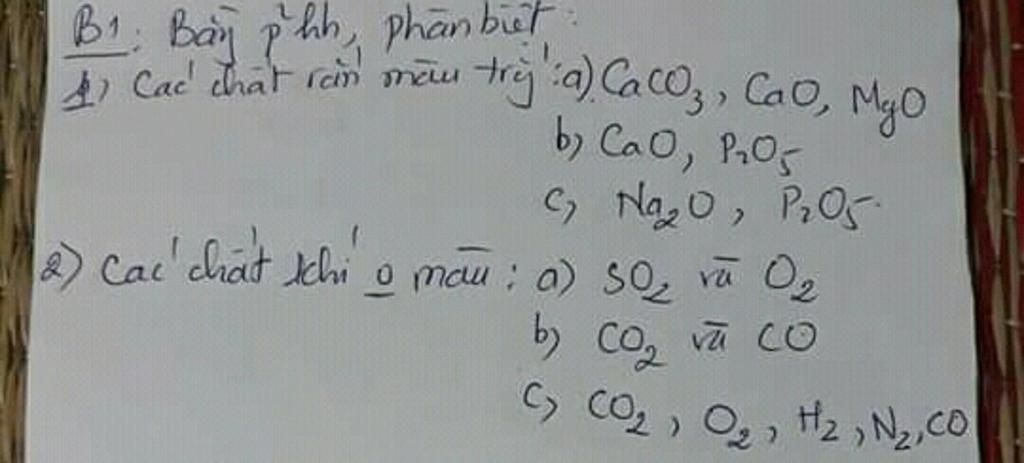 B1: Bằng p² hh, phân biệt:
1) Các chất rắn màu trắng: a) CaCO₃, CaO, MgO
b) CaO, P₂O₅
c) Na₂O, P₂O₅.
2) Các chất khí o màu: a) SO₂ và O₂
b) CO₂ và CO
c) CO₂, O₂, H₂, N₂, CO